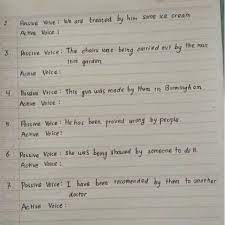 2. Passive Voice : We are treated by him some ice cream
Active Voice :
3. Passive Voice : The chairs were being carried out by the man
garden
Active Voice :
4. Passive Voice : This gun was made by them in Birmingham
Active Voice :
5. Passive Voice : He has been proved wrong by people.
Active Voice :
6. Passive Voice : She was being showed by someone to do it.
Active Voice :
7. Passive Voice : I have been recomended by them to another
doctor
Active Voice :